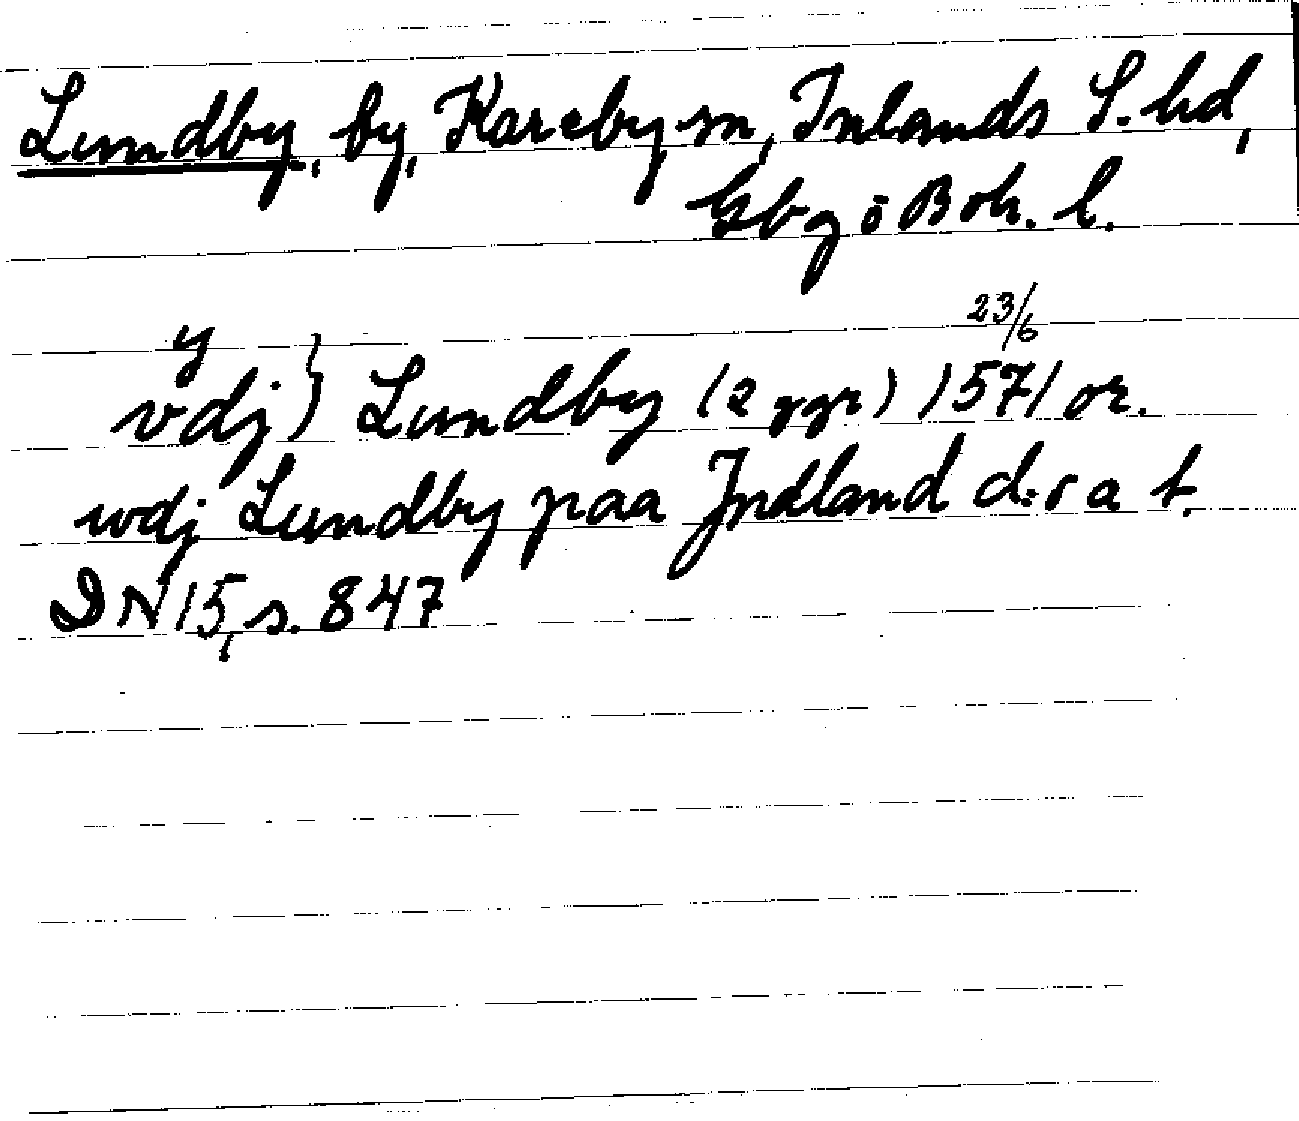 Lundby, by, Kareby sn, Inlands S. hd,
Gbg o Boh. l.
y 23/6
vdj } Lundby (2 ggr) 1571 or.
wdj Lundby paa Jndland d:o a t.
DN 15, s. 847